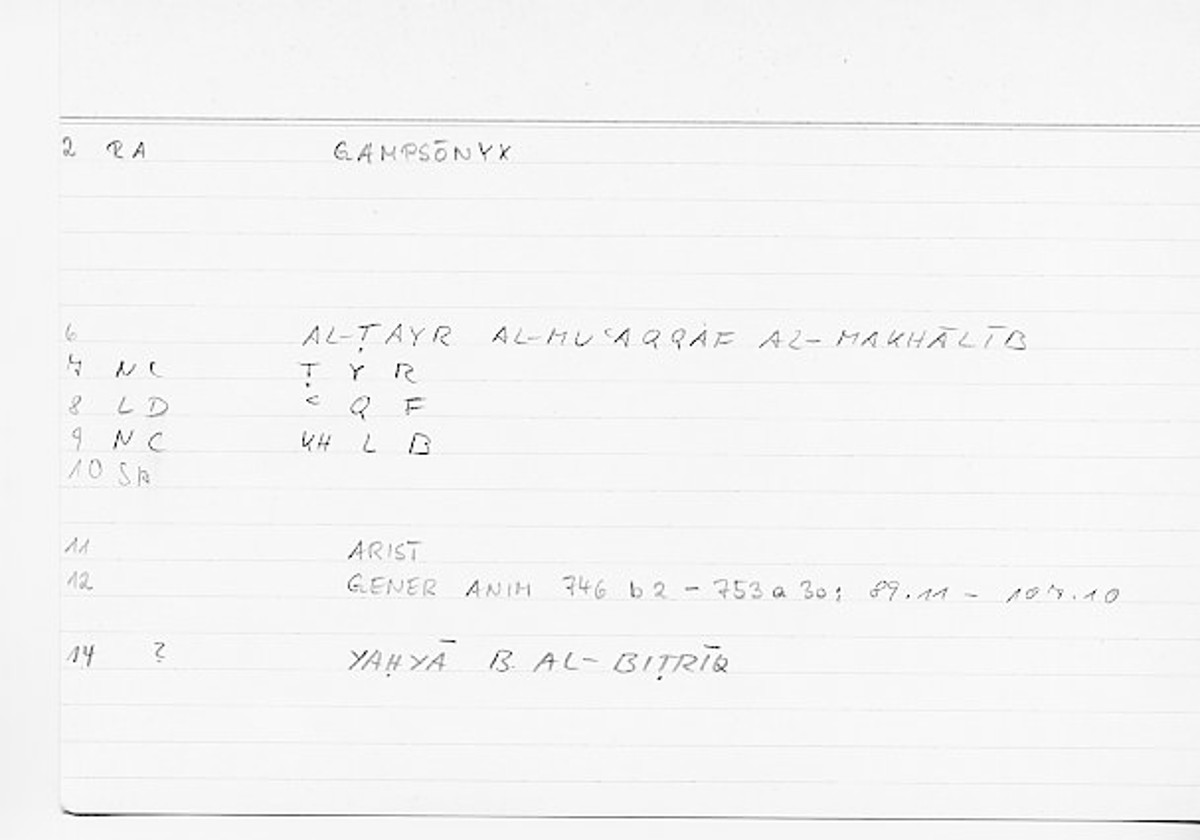 2 RA GAMPSŌNYX
6 AL-ṬAYR AL-MUʿAQQAF AL-MAKHĀLĪB
7 NC Ṭ Y R
8 LD ʿ Q F
9 NC KH L B
10 SB
11 ARIST
12 GENER ANIM 746 b 2 - 753 a 30; 89.11 - 107.10
14 ? YAḤYĀ B. AL-BIṬRĪQ